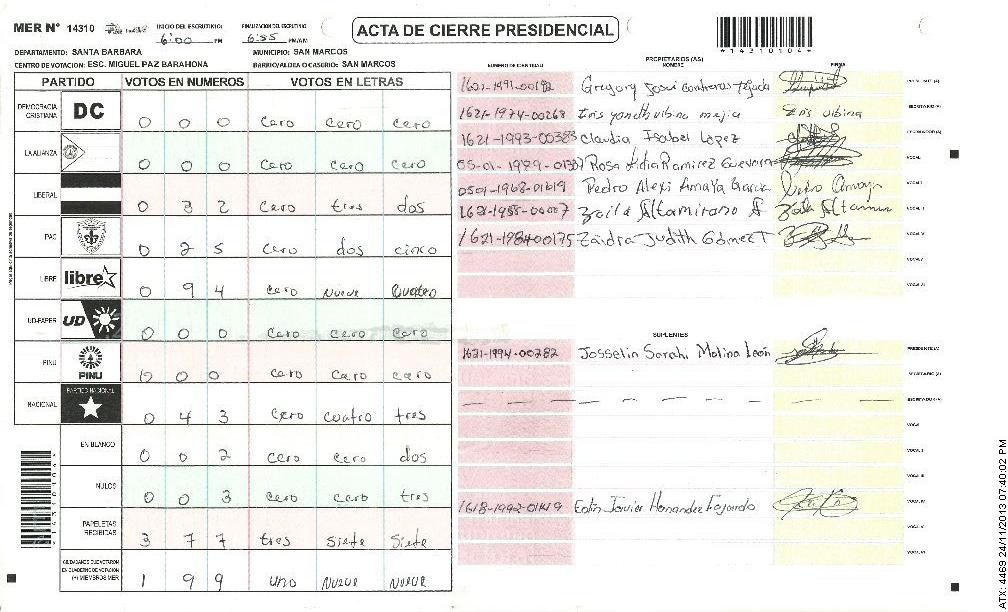 MER N° 14310
INICIO DEL ESCRUTINIO: 6:00 PM
FINALIZACION DEL ESCRUTINIO: 6:55 PM/AM
ACTA DE CIERRE PRESIDENCIAL
*14310104*
DEPARTAMENTO: SANTA BARBARA
MUNICIPIO: SAN MARCOS
CENTRO DE VOTACION: ESC. MIGUEL PAZ BARAHONA
BARRIO/ALDEA O CASERIO: SAN MARCOS
PARTIDO VOTOS EN NUMEROS VOTOS EN LETRAS
DEMOCRACIA CRISTIANA DC 0 0 0 cero cero cero
LA ALIANZA 0 0 0 cero cero cero
LIBERAL 0 3 2 cero tres dos
PAC 0 2 5 cero dos cinco
LIBRE libre 0 9 4 cero nueve cuatro
UD-FAPER UD 0 0 0 cero cero cero
PINU PINU 0 0 0 cero cero cero
NACIONAL PARTIDO NACIONAL 0 4 3 cero cuatro tres
EN BLANCO 0 0 2 cero cero dos
NULOS 0 0 3 cero cero tres
PAPELETAS RECIBIDAS 3 7 7 tres siete siete
CIUDADANOS QUE VOTARON EN CUADERNO DE VOTACION (+) MIEMBROS MER 1 9 9 uno nueve nueve
NUMERO DE IDENTIDAD
PROPIETARIOS (AS)
NOMBRE
FIRMA
Gregory José Contreras Tejada PRESIDENTE (A)
1621-1974-00268 Iris yaneth ubina mejia Iris ubina SECRETARIO (A)
1621-1993-00383 Claudia Isabel Lopez ESCRUTADOR (A)
Rosa Lidia Ramirez Guevara VOCAL I
0501-1968-01619 Pedro Alexi Amaya Garcia Pedro Amaya VOCAL II
Zoila Altamirano A Zoila Altamira VOCAL III
Zaidra Judith Gómez T VOCAL IV
VOCAL V
VOCAL VI
SUPLENTES
1621-1994-00282 Josselin Sarahi Molina León PRESIDENTE (A)
SECRETARIO (A)
ESCRUTADOR (A)
VOCAL I
VOCAL II
VOCAL III
1618-1992-01419 Edin Javier Hernandez Fajardo VOCAL IV
VOCAL V
VOCAL VI
ATX: 4469 24/11/2013 07:40:02 PM